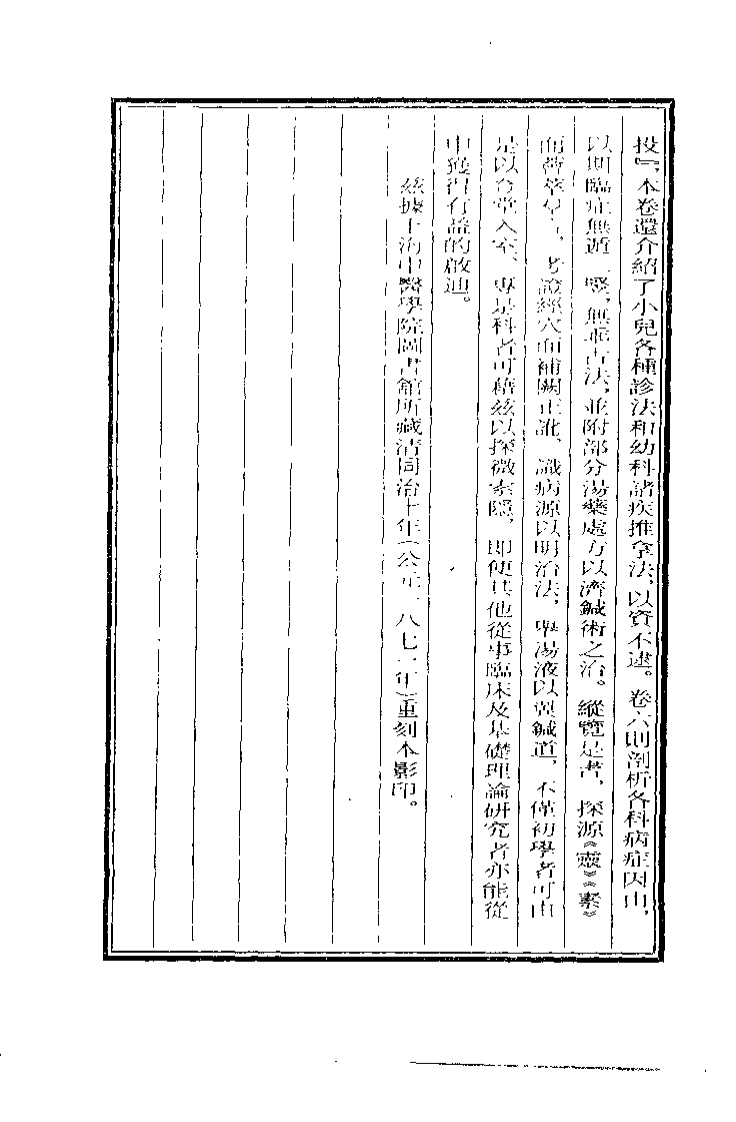 投』，本卷還介紹了小兒各種診法和幼科諸疾推拿法，以資不逮。卷六則剖析各科病症因由，
以期臨症無遁一豎，無乖古法，並附部分湯藥處方以濟鍼術之治。縱覽是書，探源《靈》《素》
而薈萃是，考證經穴而補闕正訛，識病源以明治法，舉湯液以翼鍼道，不僅初學者可由
是以登堂入室，專是科者可藉茲以探微索隱，即使其他從事臨床及基礎理論研究者亦能從
中獲得有益的啟迪。
茲據上海中醫學院圖書館所藏清同治十年（公元一八七一年）重刻本影印。